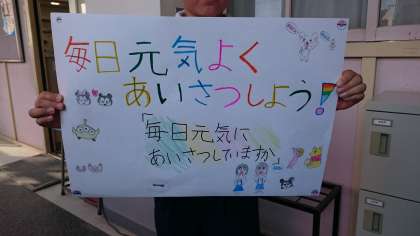 毎日元気よく
あいさつしよう!
「毎日元気に
あいさつしていますか」